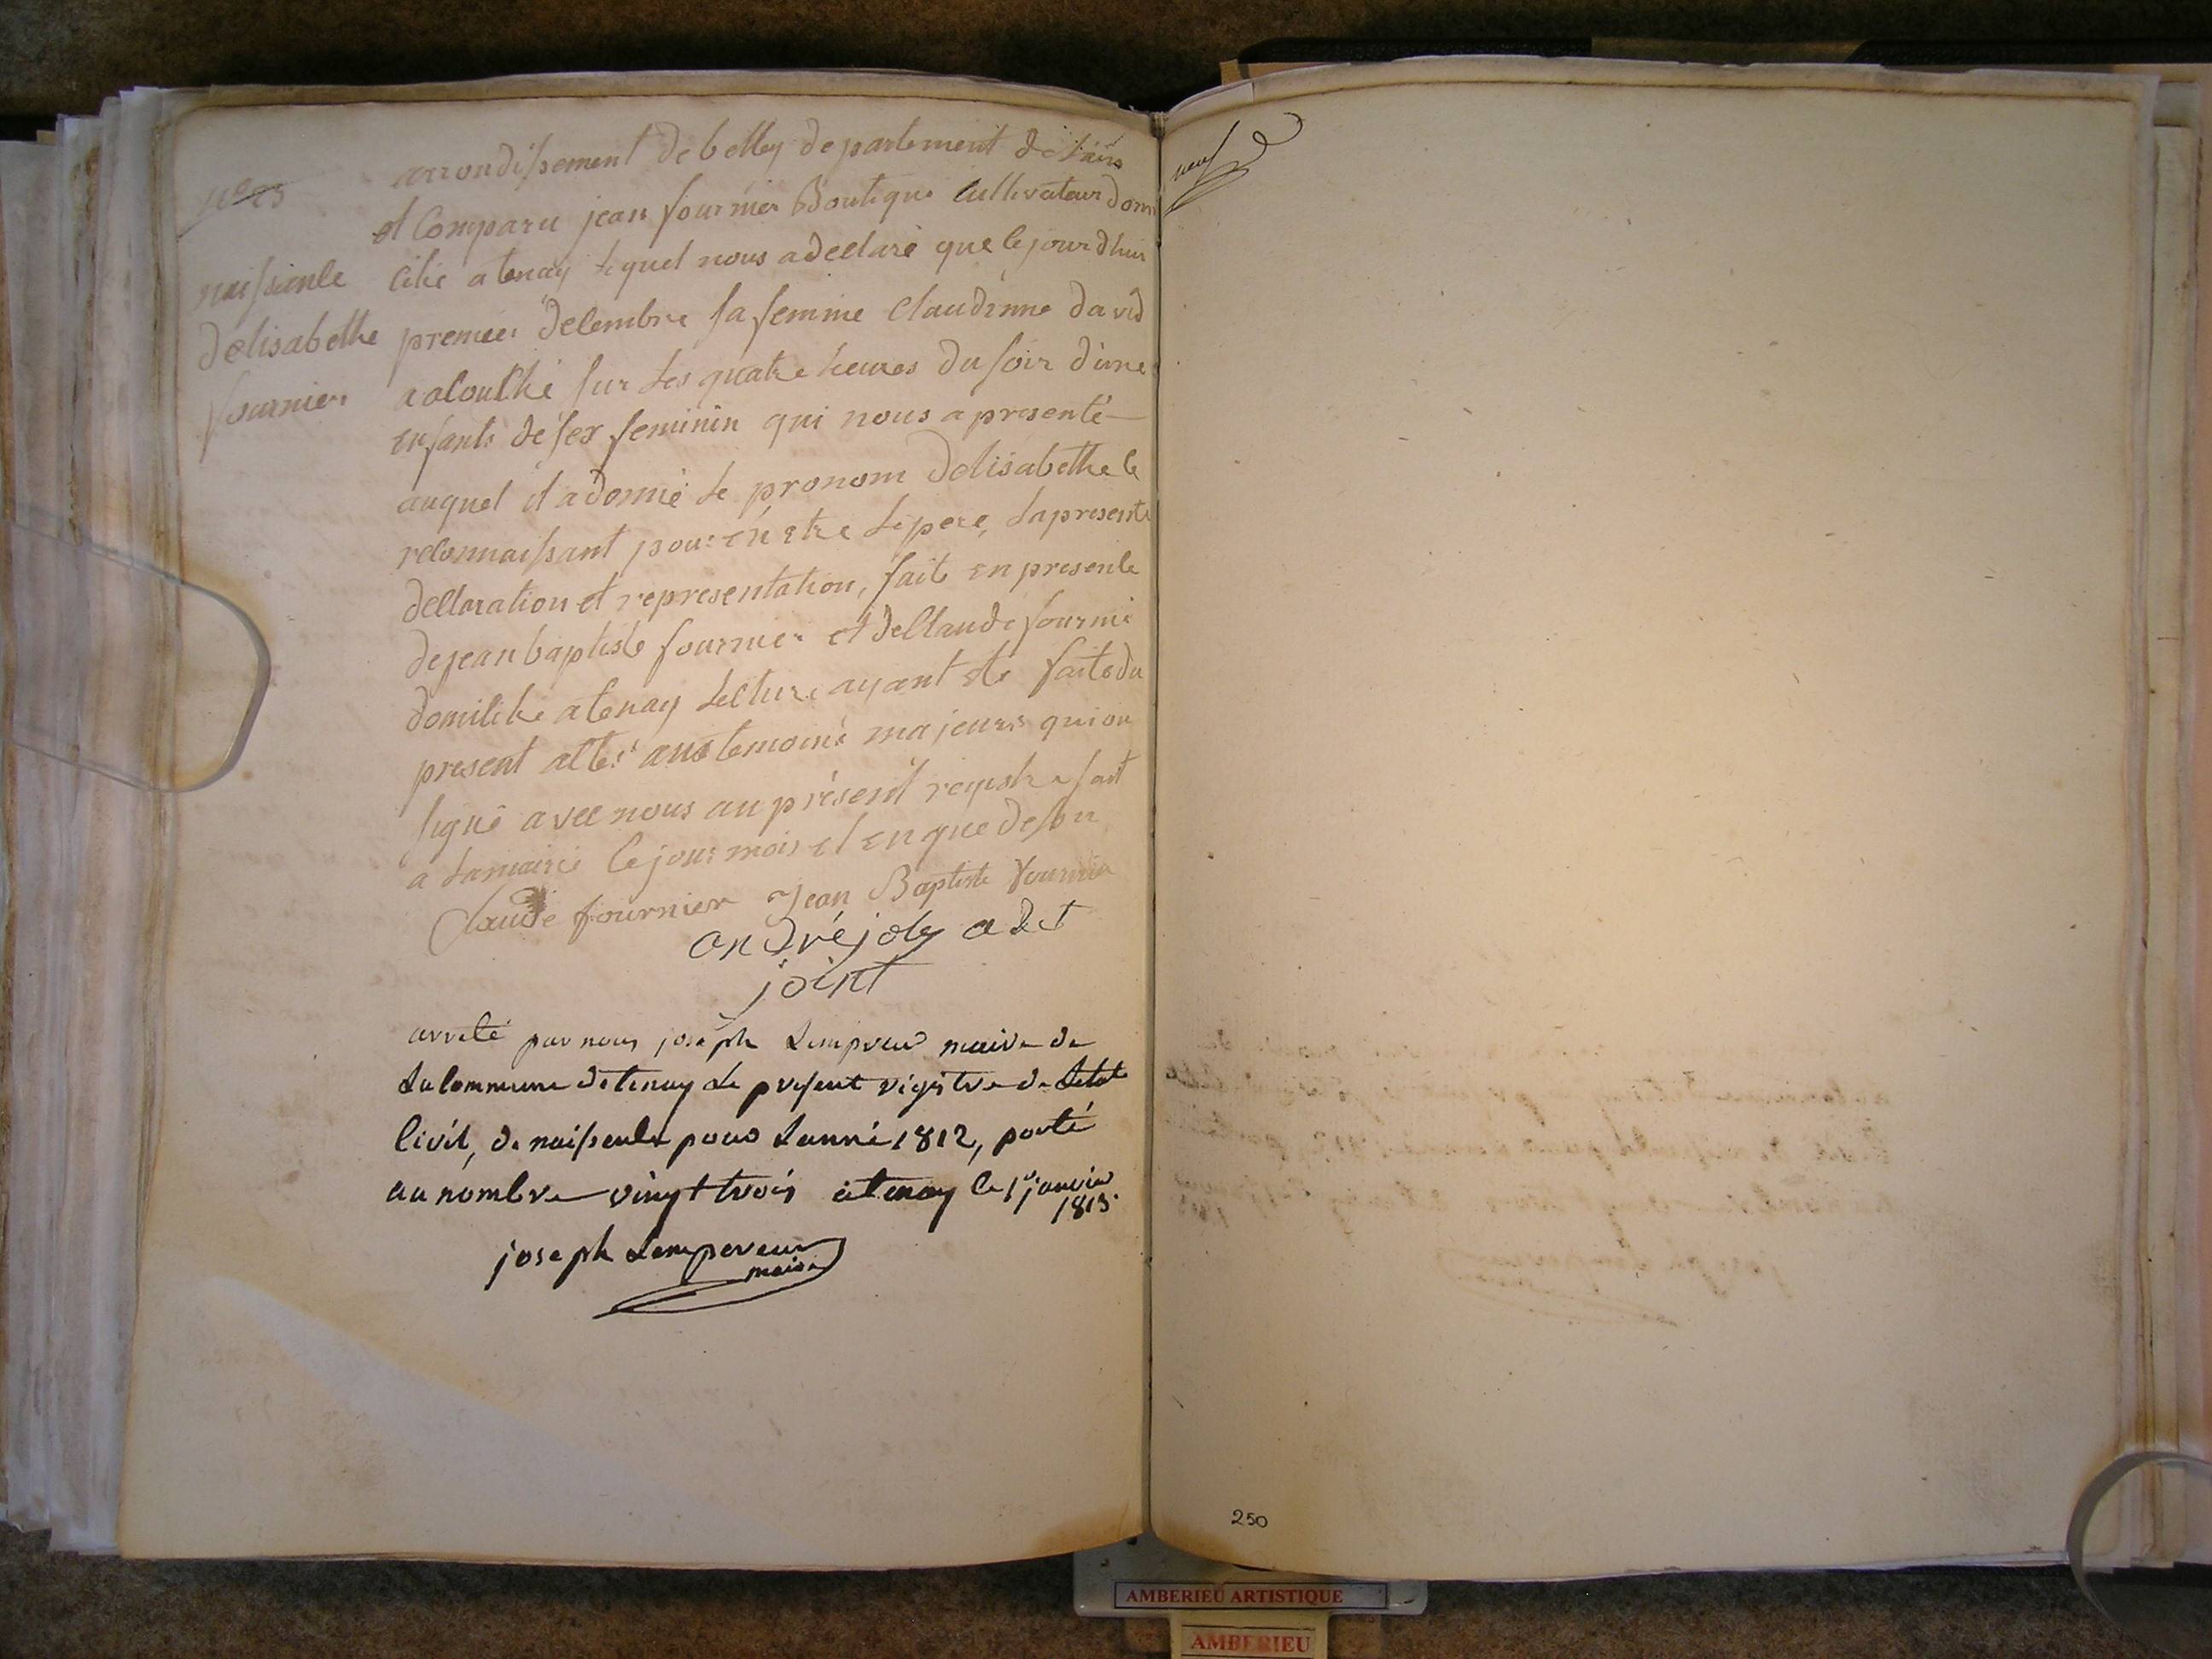 nº 23
naissence
délisabethe
fournier
arrondissement de belley departement de lain
et Comparu jean fournier Boutique Cultivateur domi
cilié a tenay lequel nous a declaré que cejourdhui
premier decembre sa femme Claudinne david
a acouché sur les quatre heures du soir d'une
enfante de sex feminin qui nous a presenté
auquel il a donné le pronom delisabethe le
reconnaissant pour en etre le pere, la presente
declaration et representation, faite en presence
de jean baptiste fournier et de Claude fournié
domicilié a tenay lecture ayant eté faite du
present acte aus temoins majeurs qui on
signé avec nous au présent registre fait
a la mairie le jour mois et en que desu
Claude fournier Jean Baptiste Fournier
andré joly adet
joint
arreté par nous joseph Lempreur maire de
La Commune de tenay Le present registre de Letat
Civil, de naissence pour Lanné 1812, porté
au nombre vingt trois a tenay le 1er janvier
1813
joseph Lempereur
maire
neuf
250
AMBERIEU ARTISTIQUE
AMBERIEU